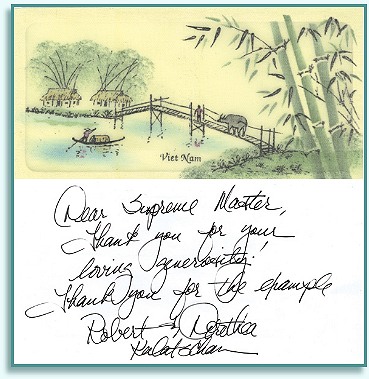 Viet Nam
Dear Supreme Master,
Thank you for your
loving generosity!
Thank you for the example
Robert & Dorthea